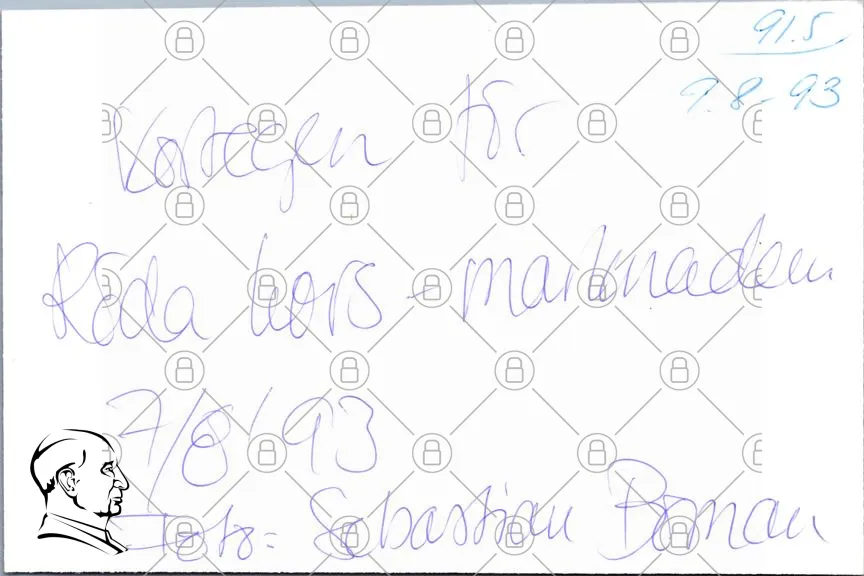 91.5
9.8-93
Kortegen för
Röda kors-marknaden
7/8 '93
Foto: Sebastian Boman